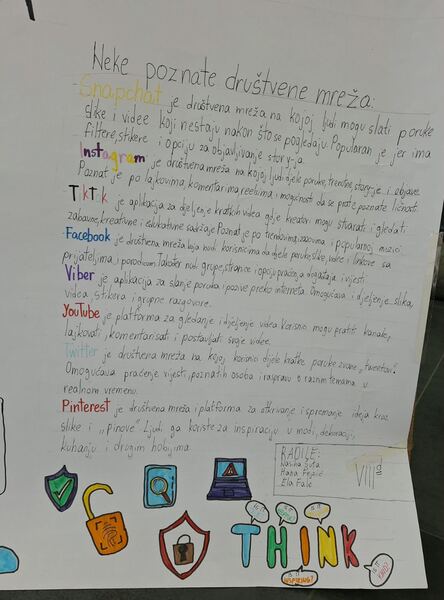 Neke poznate društvene mreža:
Snapchat je društvena mreža na kojoj ljudi mogu slati poruke
slike i videe koji nestaju nakon što se pogledaju. Popularan je jer ima
filtere, stikere i opciju za objavljivanje story-ja.
Instagram je društvena mreža na kojoj ljudi djele poruke, trenutne, story-je i objave.
Poznat je po lajkovima, komentarima, reelsima i mogućnosti da se prate poznate ličnosti.
TkTok je aplikacija za djeljenje kratkih videa gdje kreatori mogu stvarati i gledati
zabavne, kreativne i edukativne sadržaje. Poznat je po trendovima, izazovima i popularnoj muzici
Facebook je društvena mreža koja nudi korisnicima da djele poruke, slike, videe i linkove sa
prijateljima i porodicom. Također nudi grupe, stranice i opciju praćenja događaja i vijesti.
Viber je aplikacija za slanje poruka i pozive preko interneta. Omogućava i djeljenje slika,
videa, stikera i grupne razgovore.
YouTube je platforma za gledanje i djeljenje videa. Korisnici mogu pratiti kanale,
lajkovati, komentarisati i postavljati svoje videe.
Twitter je društvena mreža na kojoj korisnici djele kratke poruke zvane "tweetovi".
Omogućava praćenje vijesti, poznatih osoba i raspravu o raznim temama u
realnom vremenu.
Pinterest je društvena mreža i platforma za otkrivanje i spremanje ideja kroz
slike i "pinove". Ljudi ga koriste za inspiraciju u modi, dekoraciji,
kuhanju i drugim hobijima.
RADILE:
Hana
Ela
VIII
THINK
IS IT
IS IT
IS IT
IS IT
INSPIRING?
IS IT
KIND?